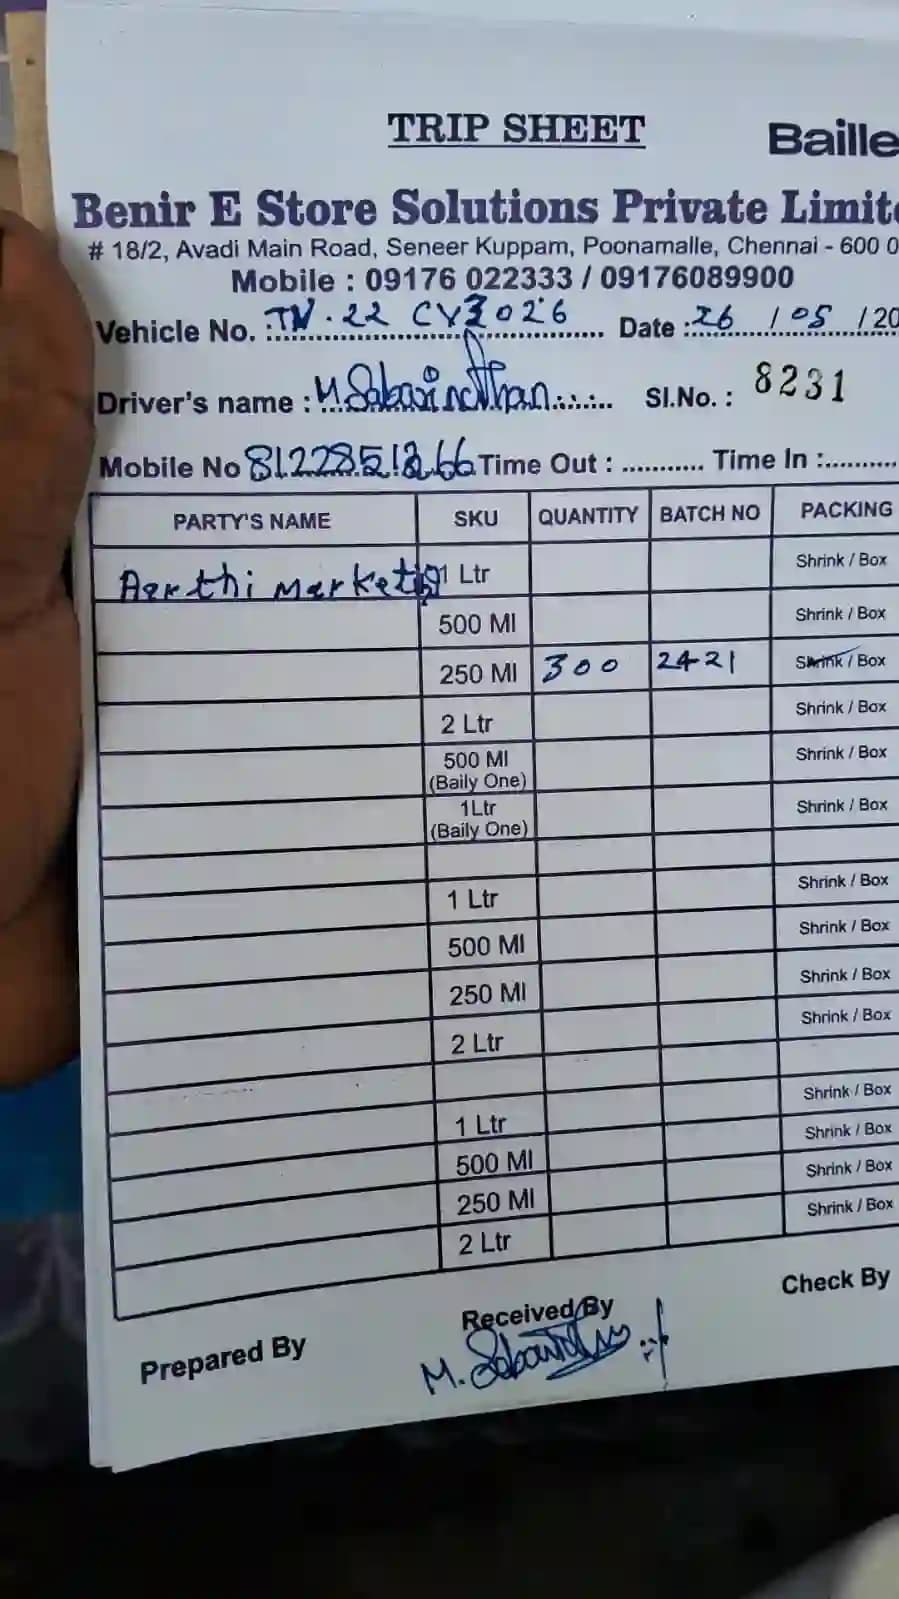 TRIP SHEET
Baille
Benir E Store Solutions Private Limite
# 18/2, Avadi Main Road, Seneer Kuppam, Poonamalle, Chennai - 600 0
Mobile : 09176 022333 / 09176089900
Vehicle No. : TN. 22 CY 3026 Date : 26 / 05 / 20
Driver's name : M Sabarindthan Sl.No. : 8231
Mobile No 8122851366 Time Out : ........... Time In :..........
PARTY'S NAME SKU QUANTITY BATCH NO PACKING
Aarthi marketing 1 Ltr Shrink / Box
500 Ml Shrink / Box
250 Ml 300 2421 Shrink / Box
2 Ltr Shrink / Box
500 Ml Shrink / Box
(Baily One)
1Ltr Shrink / Box
(Baily One)
1 Ltr Shrink / Box
500 Ml Shrink / Box
250 Ml Shrink / Box
2 Ltr Shrink / Box
1 Ltr Shrink / Box
500 Ml Shrink / Box
250 Ml Shrink / Box
2 Ltr Shrink / Box
Prepared By Received By Check By